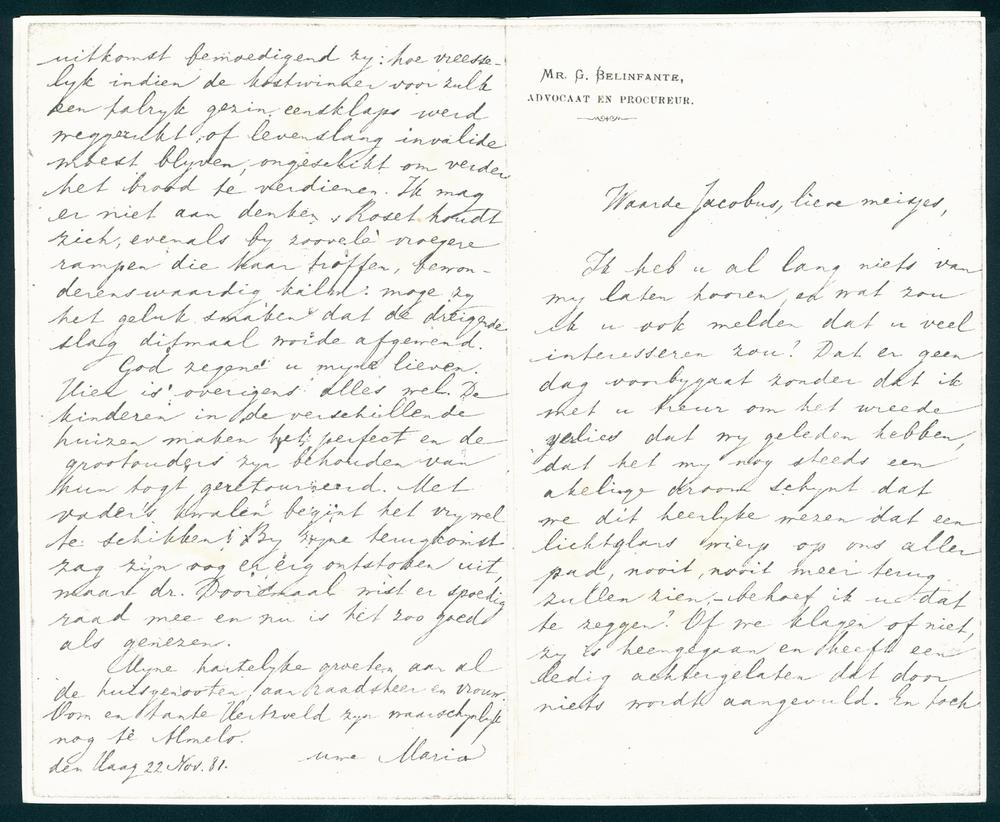 Mr. G. Belinfante,
Advocaat en Procureur.
Waarde Jacobus, lieve meisjes,
Ik heb u al lang niets van
my laten hooren, en wat zou
ik u ook melden dat u veel
interesseren zou? Dat er geen
dag voorbygaat zonder dat ik
met u treur om het wreede
verlies dat wy geleden hebben,
dat het my nog steeds een
akelige droom schynt dat
we dit heerlyke wezen dat een
lichtglans wierp op ons aller
pad, nooit, nooit meer terug
zullen zien, – behoef ik u dat
te zeggen? Of we klagen of niet,
zy is heengegaan en heeft een
ledig achtergelaten dat door
niets wordt aangevuld. En toch
uitkomst bemoedigend zy: hoe vreesse-
lyk indien de kostwinner voor zulk
een talryk gezin eensklaps werd
weggerukt, of levenslang invalide
moest blyven, ongeschikt om verder
het brood te verdienen. Ik mag
er niet aan denken. Roset houdt
zich, evenals by zoovele vroegere
rampen die haar troffen, bewon-
derenswaardig kalm: moge zy
het geluk smaken dat de dreigende
slag ditmaal worde afgewend.
God zegene u myne lieven.
Hier is overigens alles wel. De
kinderen in de verschillende
huizen maken het perfect en de
grootouders zyn behouden van
hun togt geretourneerd. Met
vader's kwalen begint het vry wel
te schikken. By zyne terugkomst
zag zyn oog er erg ontstoken uit,
maar dr. Doorsmaal wist er spoedig
raad mee en nu is het zoo goed
als genezen.
Myne hartelyke groeten aan al
de huisgenooten, aan raadsheer en vrouw.
Oom en tante Hertzveld zyn waarschynlyk
nog te Almelo.
uwe Maria
den Haag 22 Nov. 81.